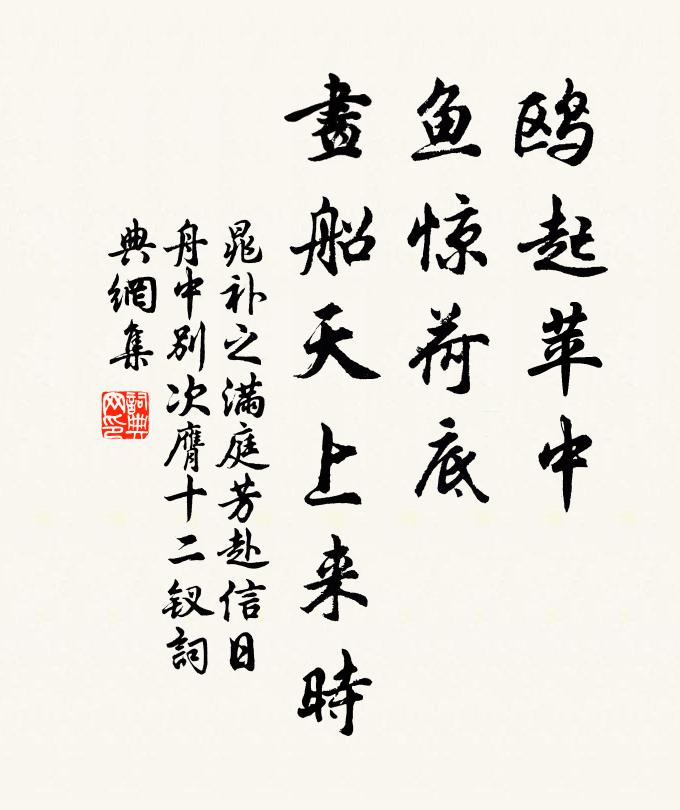 鸥起苹中
鱼惊荷底
畫船天上来時
晁补之满庭芳赴信日
舟中别次膺十二钗詞
典網集
詞典
网印